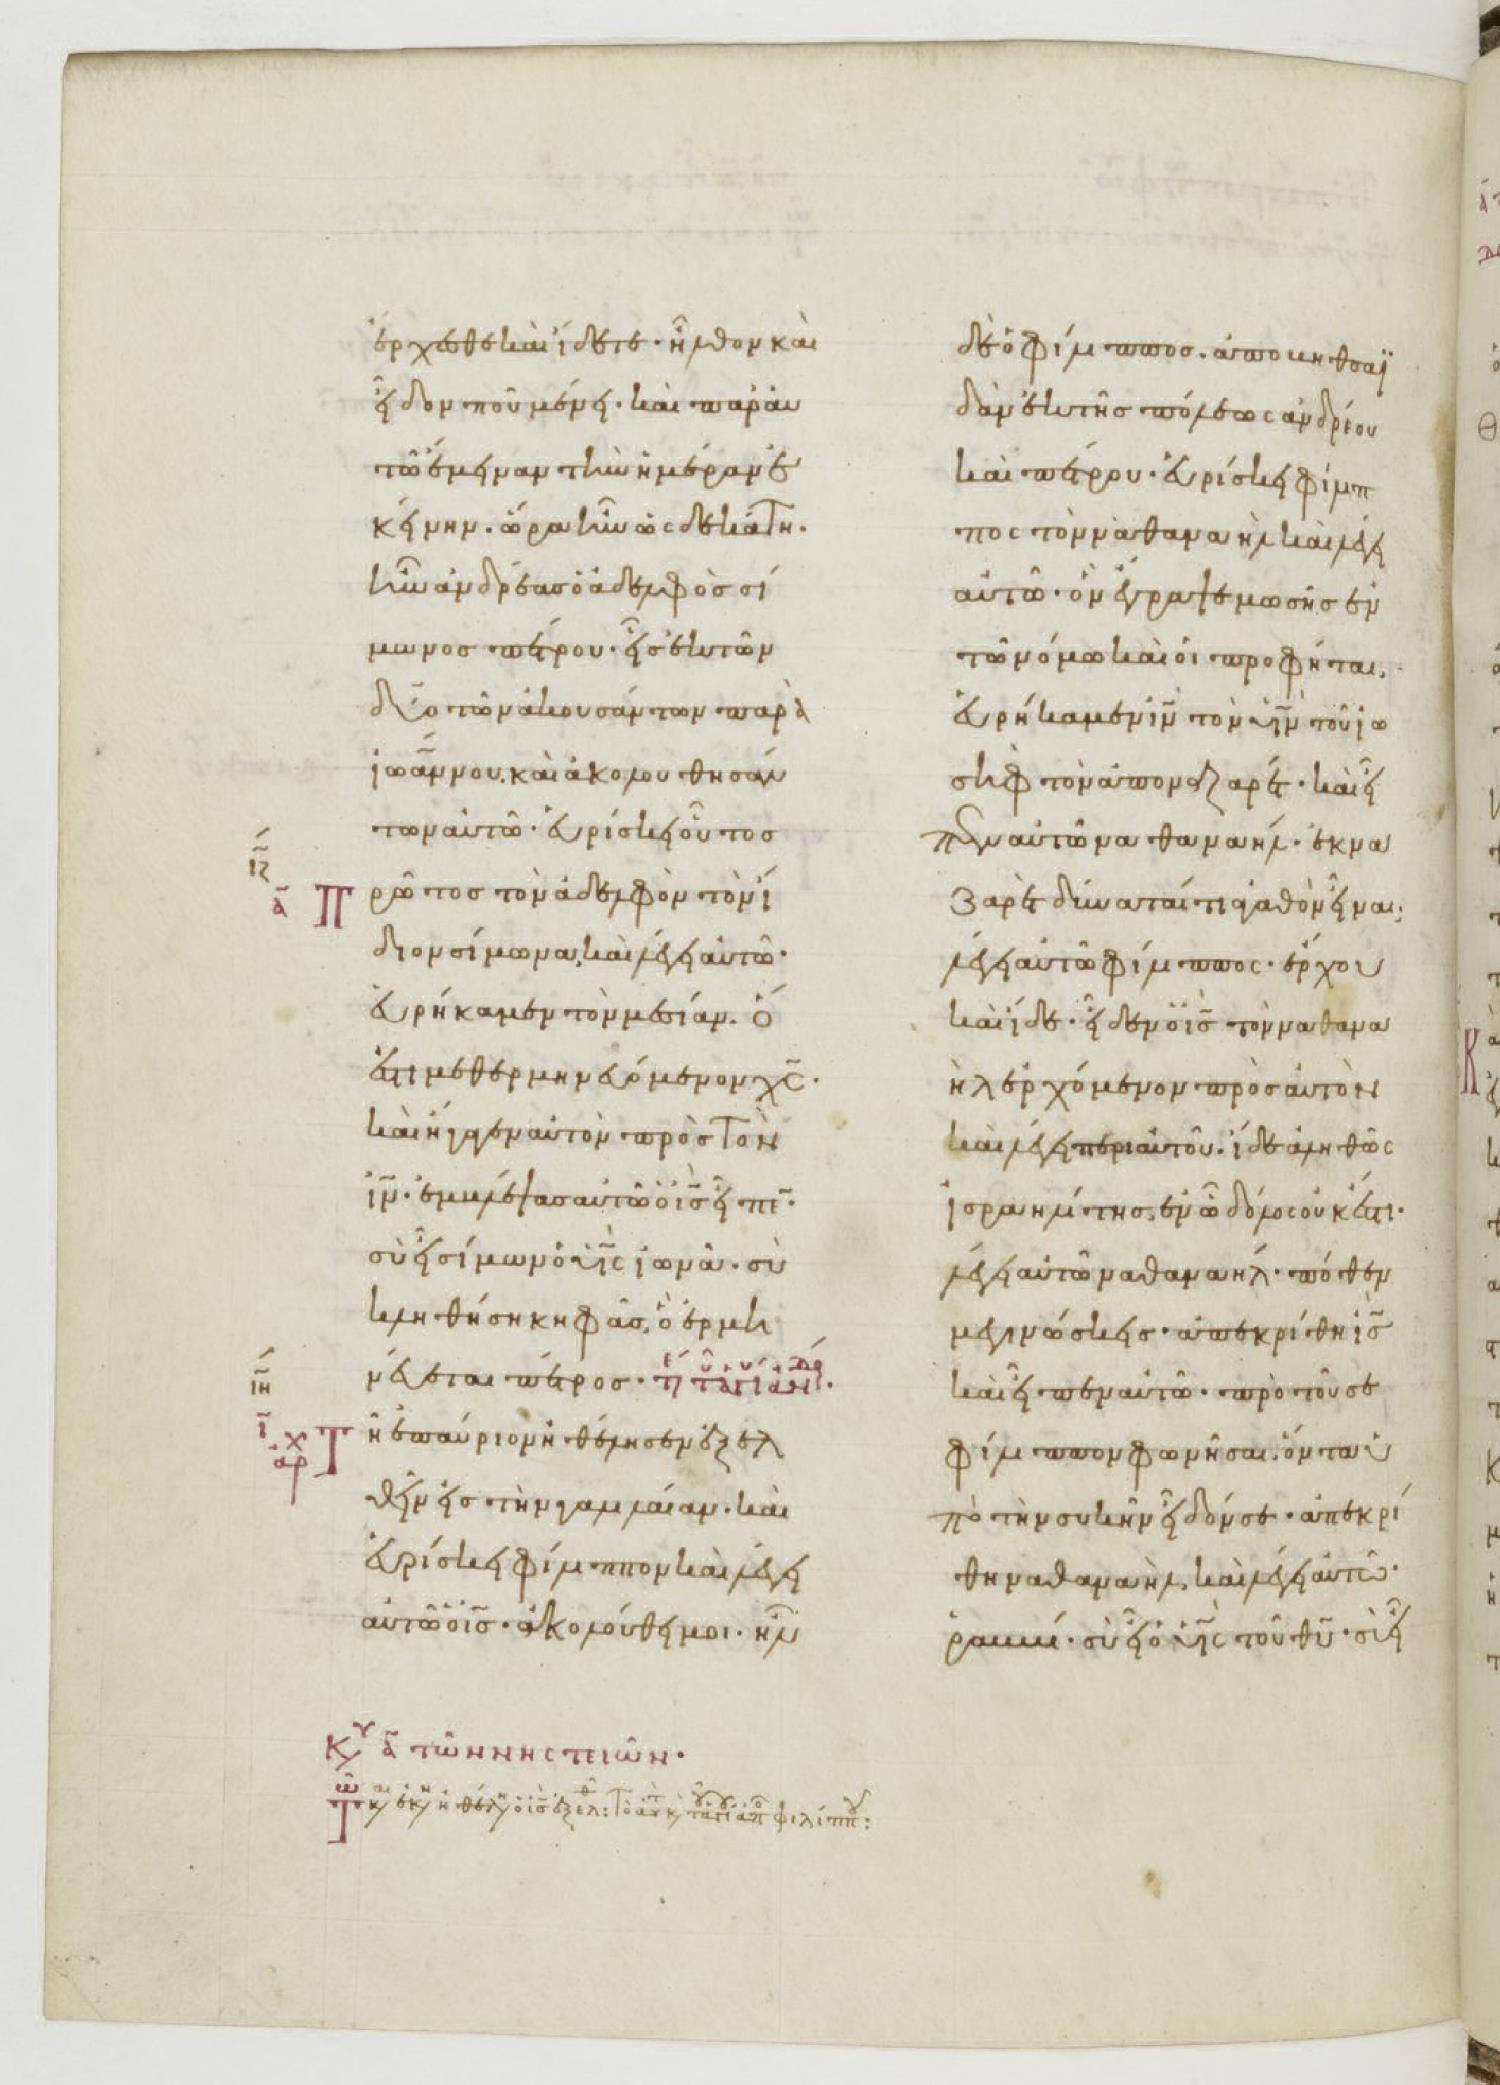 ἔρχεσθε καὶ ἴδετε· ἦλθον καὶ
εἶδον ποῦ μένει· καὶ παρ' αὐ
τῶ ἔμειναν τὴν ἡμέραν ἐ
κείνην. ὥρα ἦν ὡς δεκάτη.
ἦν ἀνδρέας ὁ ἀδελφὸς σί
μωνος πέτρου· εἷς ἐκ τῶν
δύο τῶν ἀκουσάντων παρὰ
ἰωάννου. καὶ ἀκολουθησάν
των αὐτῶ· εὑρίσκει οὗτος
ιζ
α Πρῶτος τὸν ἀδελφὸν τὸν ἴ
διον σίμωνα, καὶ λέγει αὐτῶ·
εὑρήκαμεν τὸν μεσίαν. ὅ
ἐστι μεθερμηνευόμενον χς·
καὶ ἤγαγεν αὐτὸν πρὸς τὸν
ἰν· ἐμβλέψας αὐτῶ ὁ ις εἶπε·
σὺ εἶ σίμων ὁ υἱς ἰωνᾶ· σὺ
κληθήση κηφᾶς, ὃ ἑρμη
νεύεται πέτρος·
ιη
ι
αρχ Τῆ ἐπαύριον ἠθέλησεν ἐξελ
θεῖν εἰς τὴν γαλιλαίαν· καὶ
εὑρίσκει φίλιππον καὶ λέγει
αὐτῶ ὁ ις· ἀκολούθει μοι· ἦν
δὲ ὁ φίλιππος. ἀπὸ βηθσαϊ
δὰν ἐκ τῆς πόλεως ἀνδρέου
καὶ πέτρου· εὑρίσκει φίλιπ
πος τὸν ναθαναὴλ καὶ λέγει
αὐτῶ· ὃν ἔγραψε μωσῆς ἐν
τῶ νόμω καὶ οἱ προφῆται,
εὑρήκαμεν ιν τὸν υἱν τοῦ ἰω
σὴφ τὸν ἀπὸ ναζαρέτ· καὶ εἶ
πεν αὐτῶ ναθαναήλ· ἐκ να
ζαρὲτ δύναταί τι ἀγαθὸν εἶναι;
λέγει αὐτῶ φίλιππος· ἔρχου
καὶ ἴδε· εἶδεν ὁ ις τὸν ναθανα
ὴλ ἐρχόμενον πρὸς αὐτὸν
καὶ λέγει περὶ αὐτοῦ. ἴδε ἀληθῶς
ἰσραηλίτης, ἐν ῶ δόλος οὐκ ἔστι·
λέγει αὐτῶ ναθαναήλ· πόθεν
με γινώσκεις· ἀπεκρίθη ις
καὶ εἶπεν αὐτῶ· πρὸ τοῦ σε
φίλιππον φωνῆσαι, ὄντα ὑ
πὸ τὴν συκῆν εἶδόν σε· ἀπεκρί
θη ναθαναὴλ, καὶ λέγει αὐτῶ·
ῥαββί· σὺ εἶ ὁ υἱς τοῦ θυ· σὺ εἶ
Κυ α τῶν νηστειῶν·
Τῶ